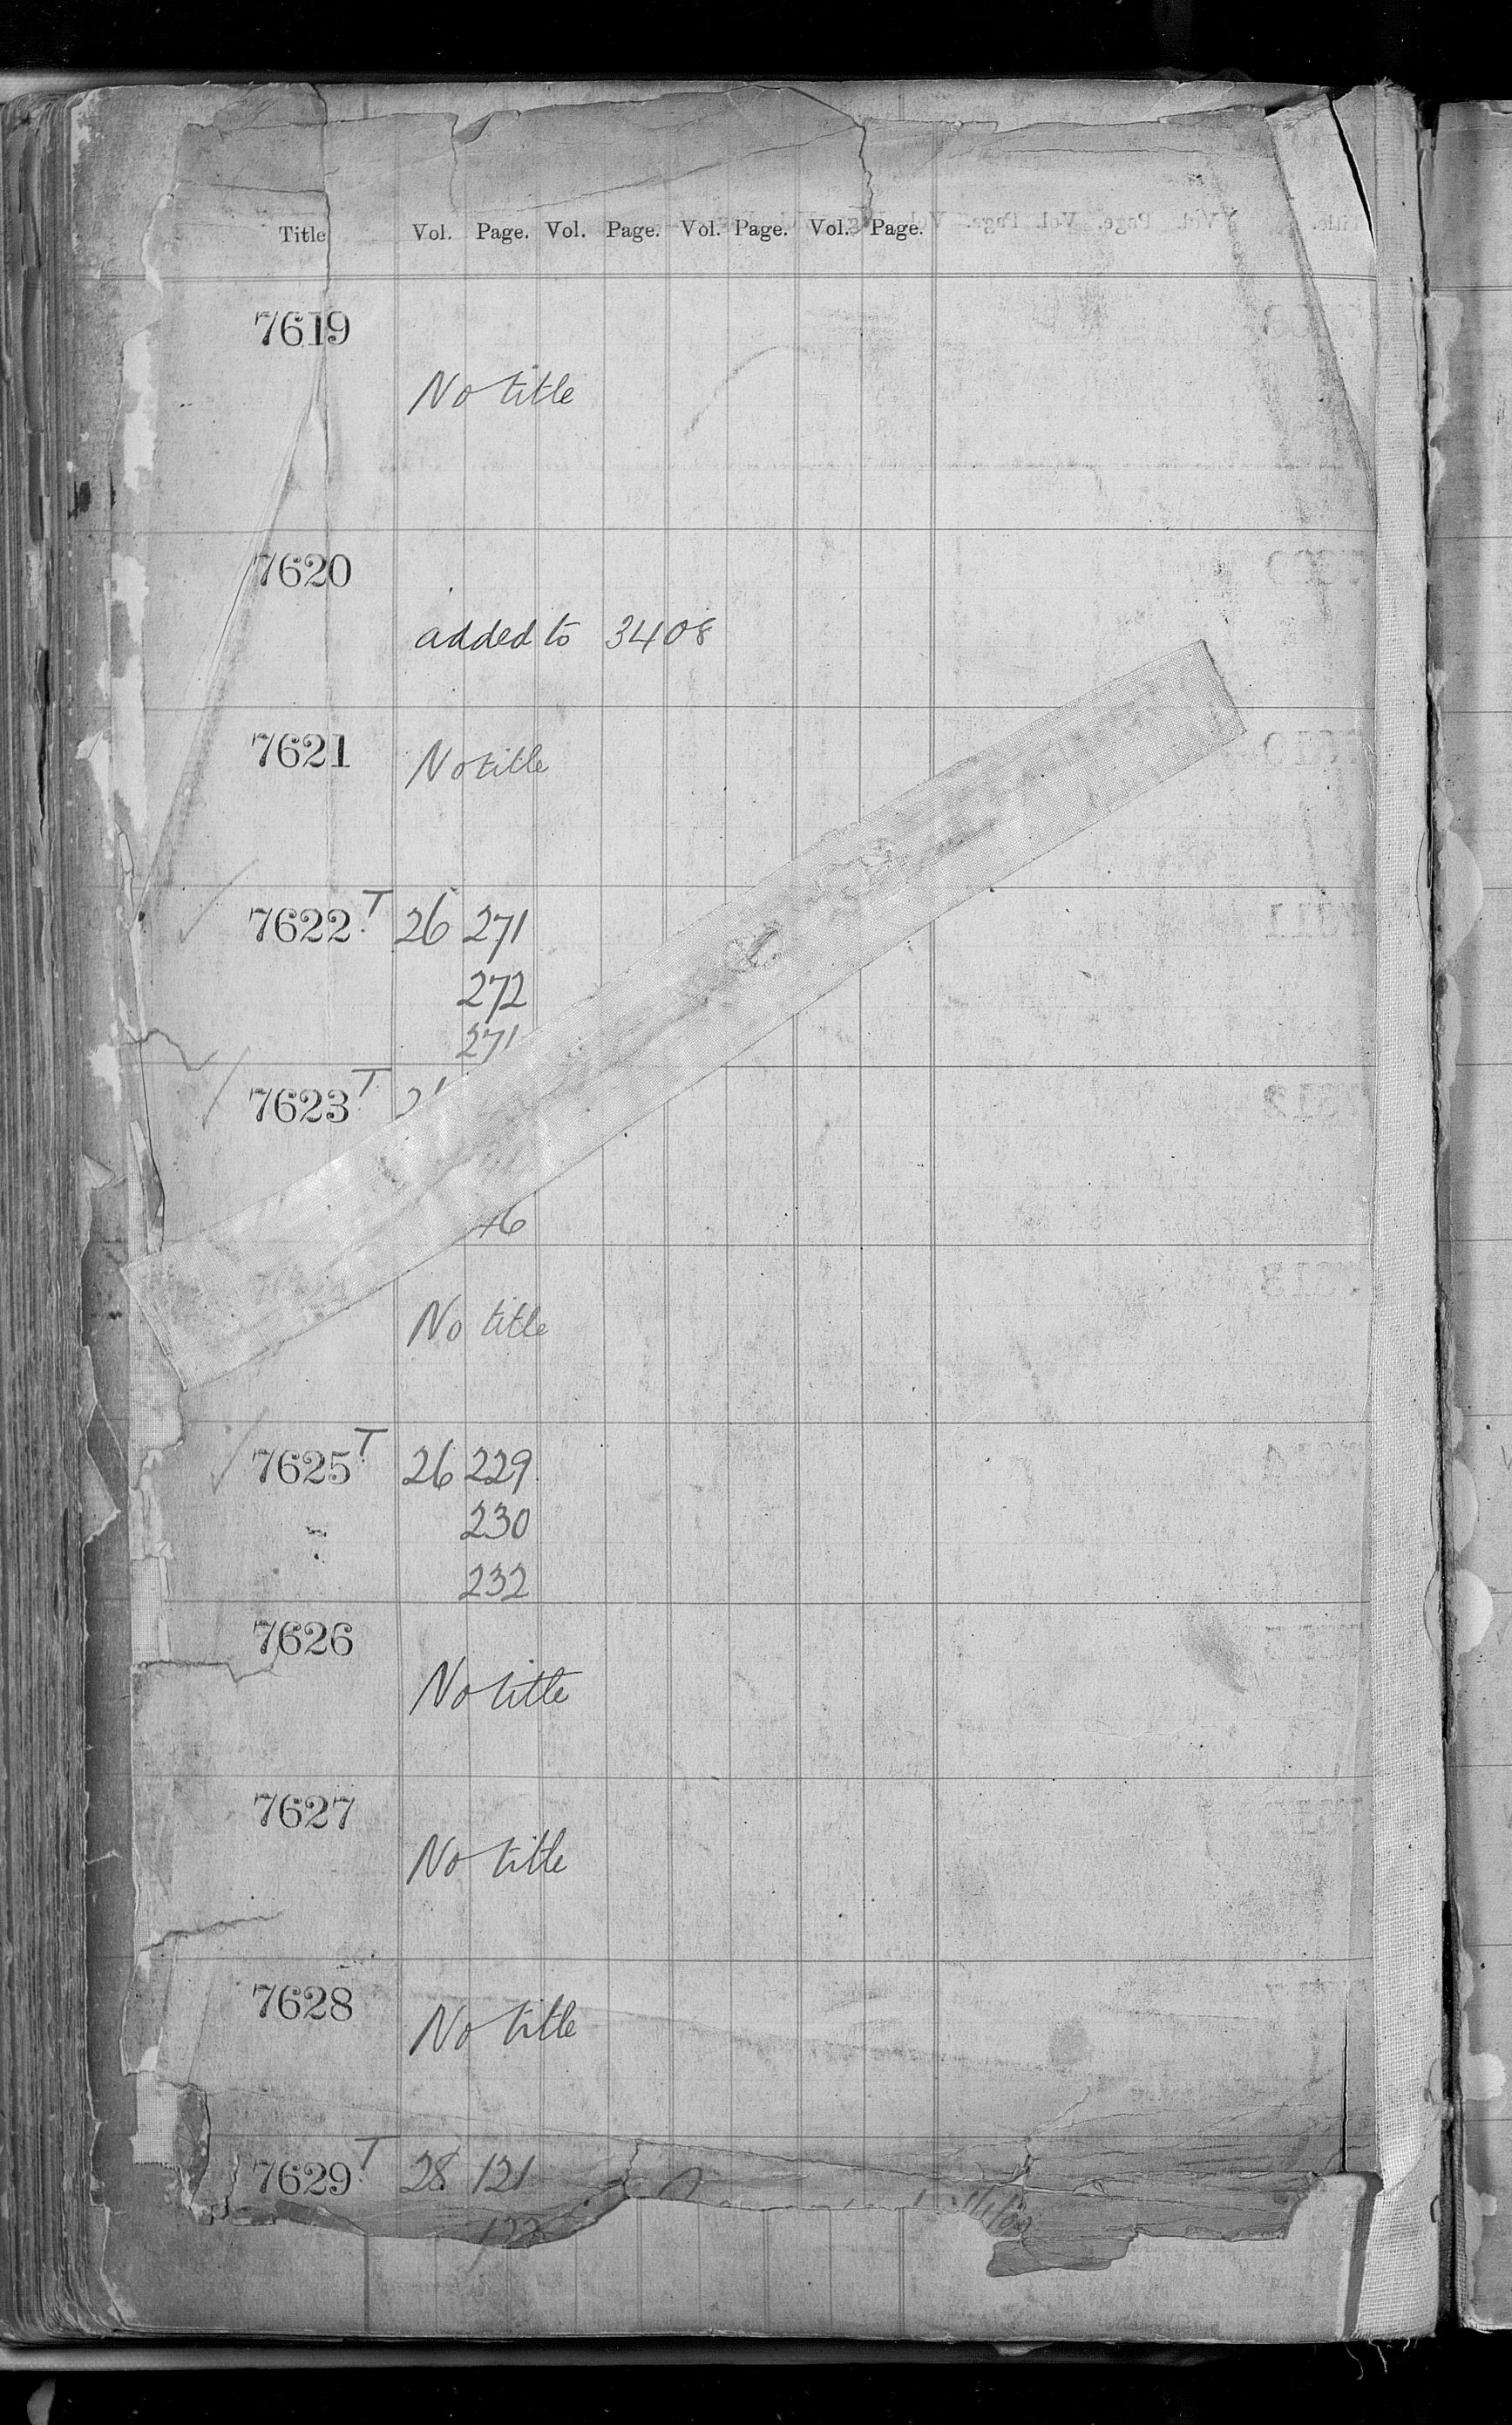 Title Vol. Page. Vol. Page. Vol. Page. Vol. Page.
7619
No title
7620
added to 3408
7621 No title
7622 T 26 271
272
271
7623 T
No title
7625 T 26 229
230
232
7626
No title
7627
No title
7628
No title
7629 T 28 121
122